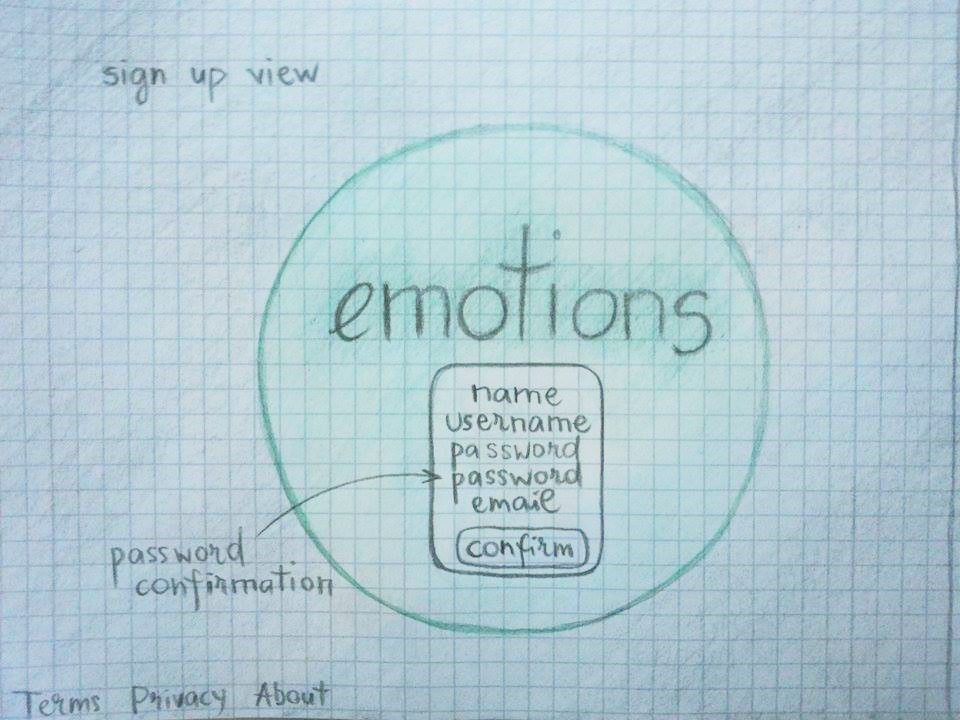 sign up view
emotions
name
username
password
password
email
confirm
password
confirmation
Terms Privacy About